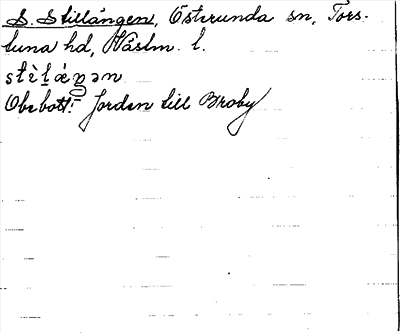 S. Stillängen, Österunda sn, Tors-
tuna hd, Västm. l.
Obebott.
Jorden till Broby